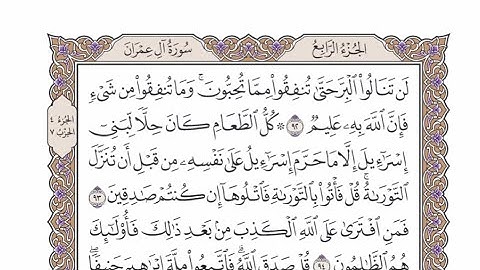 الجُزْءُ الرَّابِعُ
سُورَةُ آلِ عِمْرَانَ
لَن تَنَالُوا۟ ٱلْبِرَّ حَتَّىٰ تُنفِقُوا۟ مِمَّا تُحِبُّونَ ۚ وَمَا تُنفِقُوا۟ مِن شَىْءٍ
فَإِنَّ ٱللَّهَ بِهِۦ عَلِيمٌ ٩٢ ۞ كُلُّ ٱلطَّعَامِ كَانَ حِلًّا لِّبَنِىٓ
إِسْرَٰٓءِيلَ إِلَّا مَا حَرَّمَ إِسْرَٰٓءِيلُ عَلَىٰ نَفْسِهِۦ مِن قَبْلِ أَن تُنَزَّلَ
ٱلتَّوْرَىٰةُ ۗ قُلْ فَأْتُوا۟ بِٱلتَّوْرَىٰةِ فَٱتْلُوهَآ إِن كُنتُمْ صَٰدِقِينَ ٩٣
فَمَنِ ٱفْتَرَىٰ عَلَى ٱللَّهِ ٱلْكَذِبَ مِنۢ بَعْدِ ذَٰلِكَ فَأُو۟لَٰٓئِكَ
هُمُ ٱلظَّٰلِمُونَ ٩٤ قُلْ صَدَقَ ٱللَّهُ ۗ فَٱتَّبِعُوا۟ مِلَّةَ إِبْرَٰهِيمَ حَنِيفًا
الجزء ٤
الحزب ٧